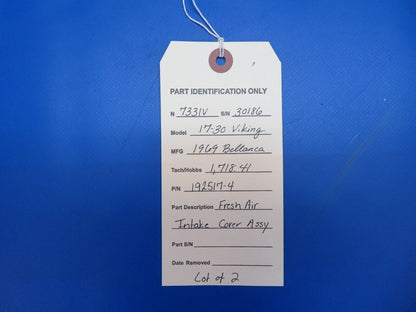 PART IDENTIFICATION ONLY
N 7331V S/N 30186
Model 17-30 Viking
MFG 1969 Bellanca
Tach/Hobbs 1,718.41
P/N 192517-4
Part Description Fresh Air
Intake Cover Assy
Part S/N
Date Removed
Lot of 2